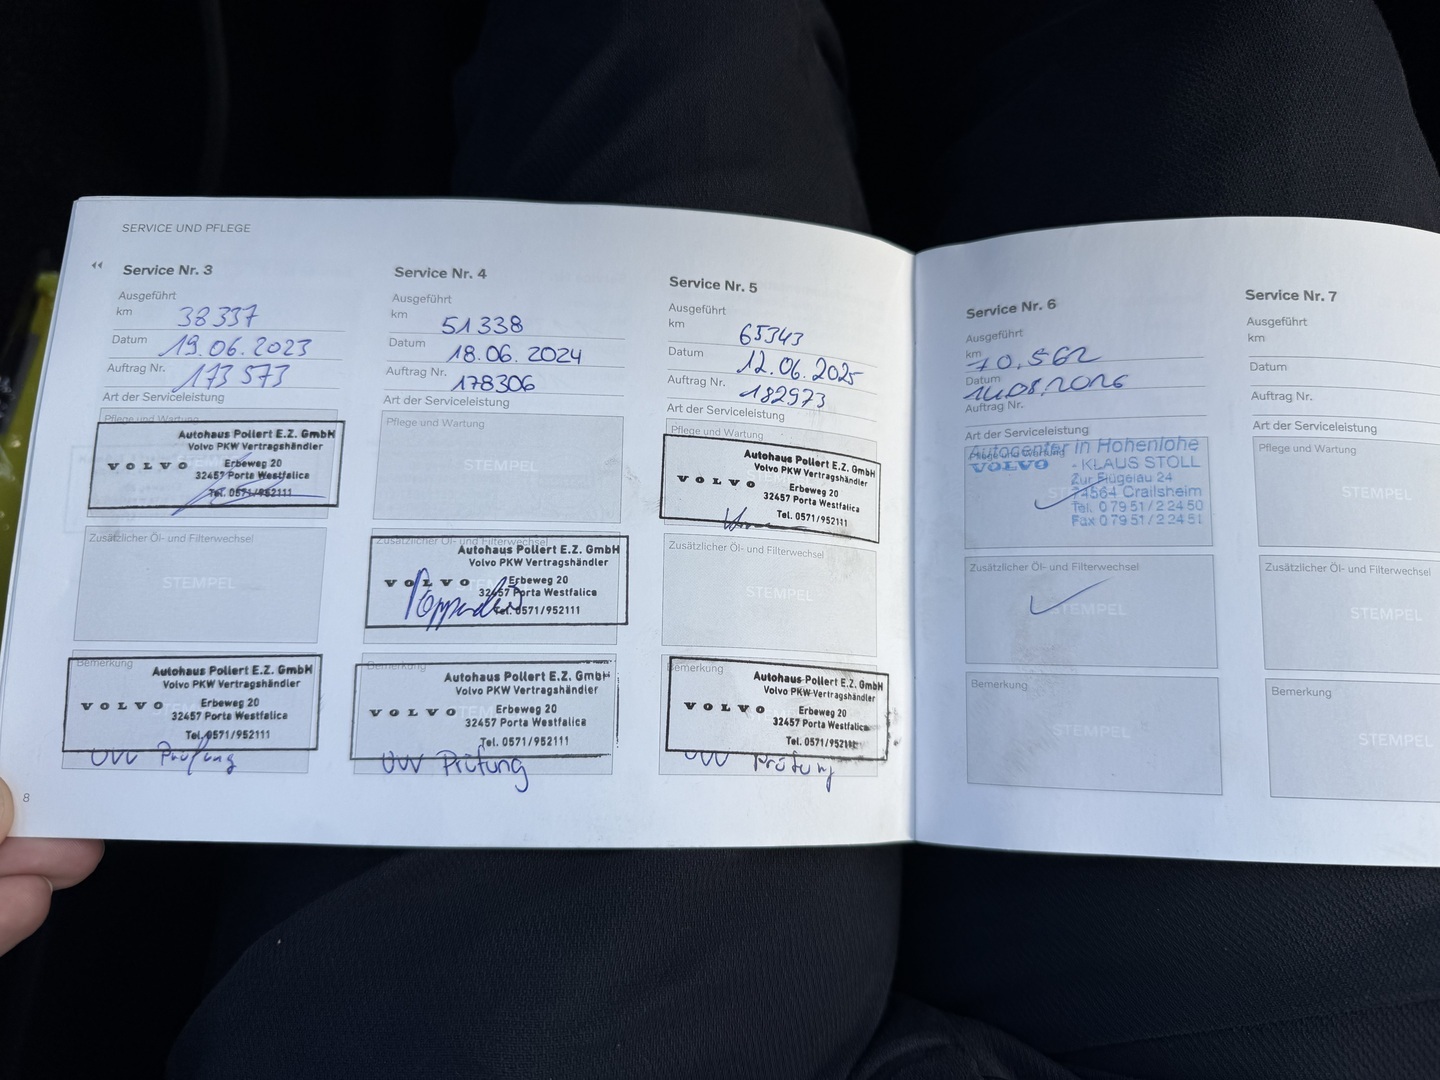 SERVICE UND PFLEGE
Service Nr. 3
Ausgeführt
km 38337
Datum 19.06.2023
Auftrag Nr. 173573
Art der Serviceleistung
Pflege und Wartung
Autohaus Pollert E.Z. GmbH
Volvo PKW Vertragshändler
VOLVO Erbeweg 20
32457 Porta Westfalica
Tel. 0571/952111
Zusätzlicher Öl- und Filterwechsel
STEMPEL
Bemerkung
Autohaus Pollert E.Z. GmbH
Volvo PKW Vertragshändler
VOLVO Erbeweg 20
32457 Porta Westfalica
Tel. 0571/952111
UVV Prüfung
8
Service Nr. 4
Ausgeführt
km 51338
Datum 18.06.2024
Auftrag Nr. 178306
Art der Serviceleistung
Pflege und Wartung
STEMPEL
Zusätzlicher Öl- und Filterwechsel
Autohaus Pollert E.Z. GmbH
Volvo PKW Vertragshändler
VOLVO Erbeweg 20
32457 Porta Westfalica
Tel. 0571/952111
Bemerkung
Autohaus Pollert E.Z. GmbH
Volvo PKW Vertragshändler
VOLVO Erbeweg 20
32457 Porta Westfalica
Tel. 0571/952111
UVV Prüfung
Service Nr. 5
Ausgeführt
km 65343
Datum 12.06.2025
Auftrag Nr. 182973
Art der Serviceleistung
Pflege und Wartung
Autohaus Pollert E.Z. GmbH
Volvo PKW Vertragshändler
VOLVO Erbeweg 20
32457 Porta Westfalica
Tel. 0571/952111
Zusätzlicher Öl- und Filterwechsel
STEMPEL
Bemerkung
Autohaus Pollert E.Z. GmbH
Volvo PKW Vertragshändler
VOLVO Erbeweg 20
32457 Porta Westfalica
Tel. 0571/952111
UVV Prüfung
Service Nr. 6
Ausgeführt
km 70.562
Datum
Auftrag Nr.
Art der Serviceleistung
Pflege und Wartung
Autocenter in Hohenlohe
VOLVO - KLAUS STOLL
Zur Flügelau 24
74564 Crailsheim
Tel. 0 79 51 / 2 24 50
Fax 0 79 51 / 2 24 51
Zusätzlicher Öl- und Filterwechsel
STEMPEL
Bemerkung
STEMPEL
Service Nr. 7
Ausgeführt
km
Datum
Auftrag Nr.
Art der Serviceleistung
Pflege und Wartung
STEMPEL
Zusätzlicher Öl- und Filterwechsel
STEMPEL
Bemerkung
STEMPEL